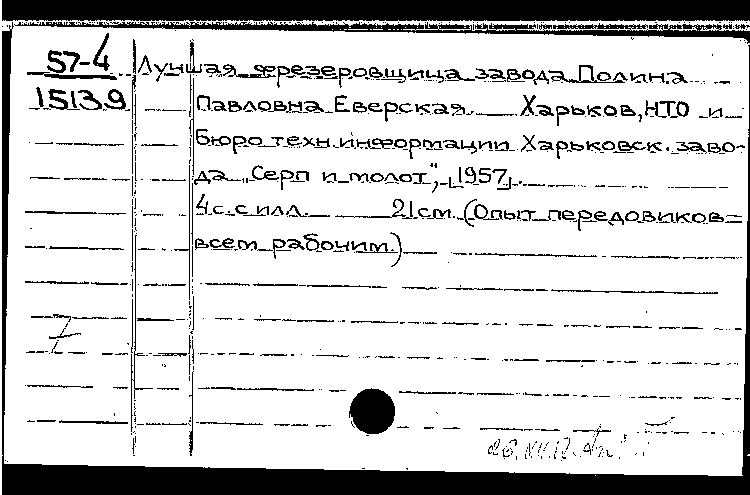 57-4
15139
Лучшая фрезеровщица завода Полина
Павловна Еверская. Харьков, НТО и
Бюро техн. информации Харьковск. заво-
да "Серп и молот", [1957].
4 с. с илл. 21 см. (Опыт передовиков -
всем рабочим.)
7